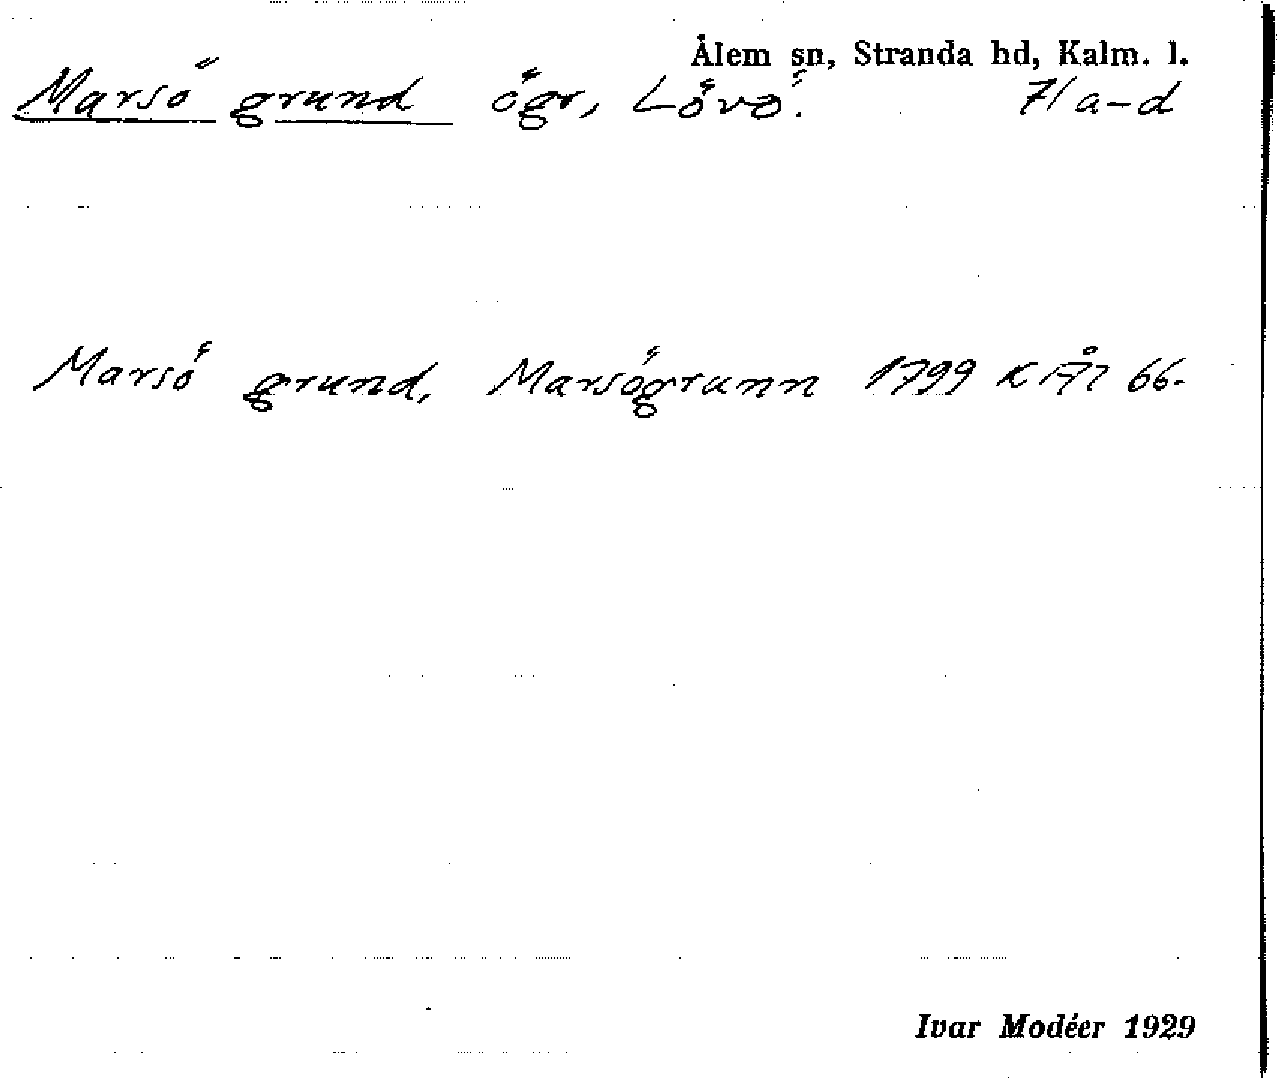 Ålem sn, Stranda hd, Kalm. l.
Marsö grund ögr, Lövö. 7/a-d
Marsö grund, Marsögrunn 1799 KrÅ7 66.
Ivar Modéer 1929